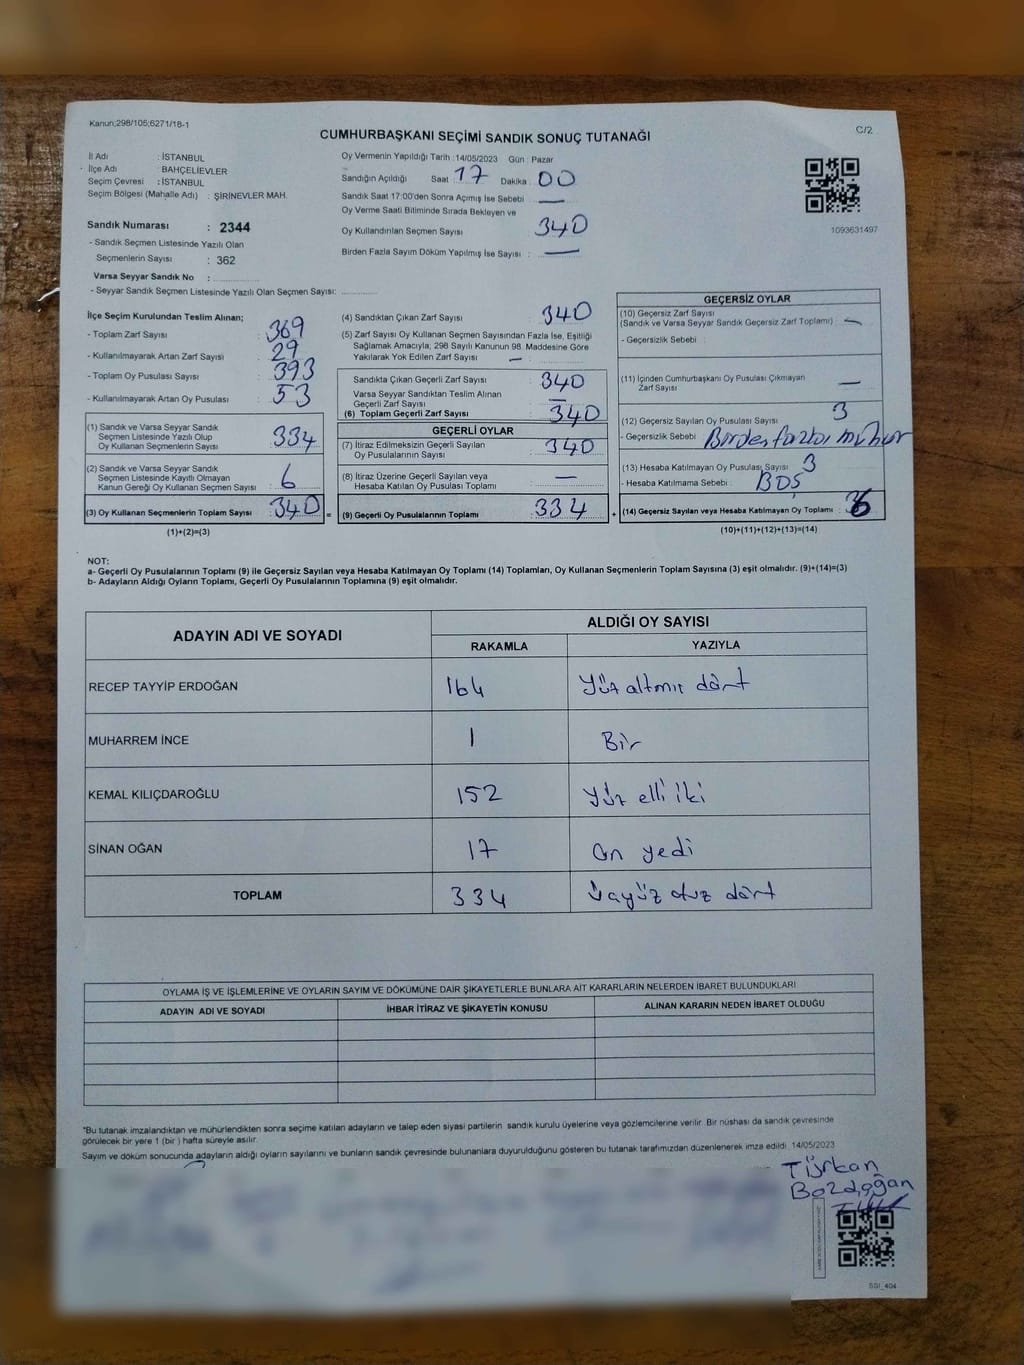 Kanun;298/105;6271/18-1
C/2
CUMHURBAŞKANI SEÇİMİ SANDIK SONUÇ TUTANAĞI
İl Adı : İSTANBUL
İlçe Adı : BAHÇELİEVLER
Seçim Çevresi : İSTANBUL
Seçim Bölgesi (Mahalle Adı) : ŞİRİNEVLER MAH.
Sandık Numarası : 2344
- Sandık Seçmen Listesinde Yazılı Olan
Seçmenlerin Sayısı : 362
Varsa Seyyar Sandık No :
- Seyyar Sandık Seçmen Listesinde Yazılı Olan Seçmen Sayısı:
Oy Vermenin Yapıldığı Tarih : 14/05/2023 Gün : Pazar
Sandığın Açıldığı Saat : 17 Dakika : 00
Sandık Saat 17:00'den Sonra Açılmış İse Sebebi : —
Oy Verme Saati Bitiminde Sırada Bekleyen ve
Oy Kullandırılan Seçmen Sayısı : 340
Birden Fazla Sayım Döküm Yapılmış İse Sayısı : —
1093631497
İlçe Seçim Kurulundan Teslim Alınan;
- Toplam Zarf Sayısı : 369
- Kullanılmayarak Artan Zarf Sayısı : 29
- Toplam Oy Pusulası Sayısı : 393
- Kullanılmayarak Artan Oy Pusulası : 53
(1) Sandık ve Varsa Seyyar Sandık
Seçmen Listesinde Yazılı Olup
Oy Kullanan Seçmenlerin Sayısı : 334
(2) Sandık ve Varsa Seyyar Sandık
Seçmen Listesinde Kayıtlı Olmayan
Kanun Gereği Oy Kullanan Seçmen Sayısı : 6
(3) Oy Kullanan Seçmenlerin Toplam Sayısı : 340 =
(1)+(2)=(3)
(4) Sandıktan Çıkan Zarf Sayısı : 340
(5) Zarf Sayısı Oy Kullanan Seçmen Sayısından Fazla İse, Eşitliği
Sağlamak Amacıyla; 298 Sayılı Kanunun 98. Maddesine Göre
Yakılarak Yok Edilen Zarf Sayısı : —
Sandıkta Çıkan Geçerli Zarf Sayısı : 340
Varsa Seyyar Sandıktan Teslim Alınan
Geçerli Zarf Sayısı : —
(6) Toplam Geçerli Zarf Sayısı : 340
GEÇERLİ OYLAR
(7) İtiraz Edilmeksizin Geçerli Sayılan
Oy Pusulalarının Sayısı : 340
(8) İtiraz Üzerine Geçerli Sayılan veya
Hesaba Katılan Oy Pusulası Toplamı : —
(9) Geçerli Oy Pusulalarının Toplamı : 334 +
GEÇERSİZ OYLAR
(10) Geçersiz Zarf Sayısı
(Sandık ve Varsa Seyyar Sandık Geçersiz Zarf Toplamı) : —
- Geçersizlik Sebebi :
(11) İçinden Cumhurbaşkanı Oy Pusulası Çıkmayan
Zarf Sayısı : —
(12) Geçersiz Sayılan Oy Pusulası Sayısı : 3
- Geçersizlik Sebebi : Birden fazla mühür
(13) Hesaba Katılmayan Oy Pusulası Sayısı : 3
- Hesaba Katılmama Sebebi : BOŞ
(14) Geçersiz Sayılan veya Hesaba Katılmayan Oy Toplamı : 6
(10)+(11)+(12)+(13)=(14)
NOT:
a- Geçerli Oy Pusulalarının Toplamı (9) ile Geçersiz Sayılan veya Hesaba Katılmayan Oy Toplamı (14) Toplamları, Oy Kullanan Seçmenlerin Toplam Sayısına (3) eşit olmalıdır. (9)+(14)=(3)
b- Adayların Aldığı Oyların Toplamı, Geçerli Oy Pusulalarının Toplamına (9) eşit olmalıdır.
ADAYIN ADI VE SOYADI ALDIĞI OY SAYISI
RAKAMLA YAZIYLA
RECEP TAYYİP ERDOĞAN 164 Yüz altmış dört
MUHARREM İNCE 1 Bir
KEMAL KILIÇDAROĞLU 152 Yüz elli iki
SİNAN OĞAN 17 On yedi
TOPLAM 334 üçyüz otuz dört
OYLAMA İŞ VE İŞLEMLERİNE VE OYLARIN SAYIM VE DÖKÜMÜNE DAİR ŞİKAYETLERLE BUNLARA AİT KARARLARIN NELERDEN İBARET BULUNDUKLARI
ADAYIN ADI VE SOYADI İHBAR İTİRAZ VE ŞİKAYETİN KONUSU ALINAN KARARIN NEDEN İBARET OLDUĞU
*Bu tutanak imzalandıktan ve mühürlendikten sonra seçime katılan adayların ve talep eden siyasi partilerin sandık kurulu üyelerine veya gözlemcilerine verilir. Bir nüshası da sandık çevresinde
görülecek bir yere 1 (bir ) hafta süreyle asılır.
Sayım ve döküm sonucunda adayların aldığı oyların sayılarını ve bunların sandık çevresinde bulunanlara duyurulduğunu gösteren bu tutanak tarafımızdan düzenlenerek imza edildi. 14/05/2023
Türkan
Bozdoğan
SSI_404